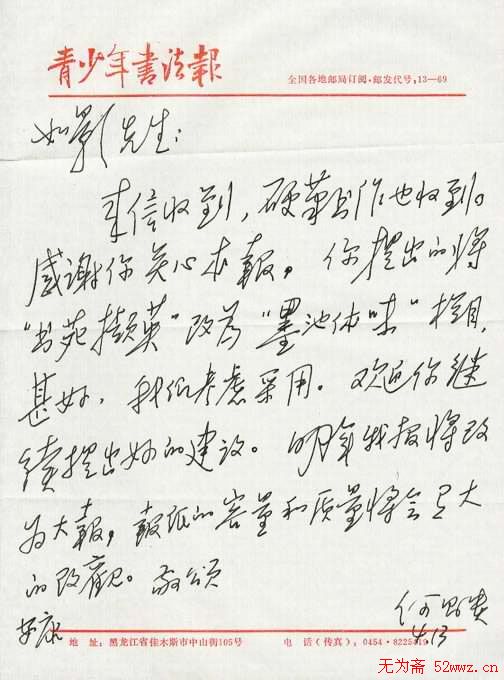 青少年书法报
全国各地邮局订阅·邮发代号，13—69
如影先生：
来信收到，硬笔书作也收到。
感谢你关心本報，你提出的将
“书苑撷英”改为“墨池体味”栏目，
甚好，我们考虑采用。欢迎你继
续提出好的建议。明年我报将改
为大報，報纸的容量和质量将会有大
的改觀。敬颂
安康
4.13
地 址：黑龙江省佳木斯市中山街105号 电 话（传真）：0454·8225419
无为斋 52wwz.cn